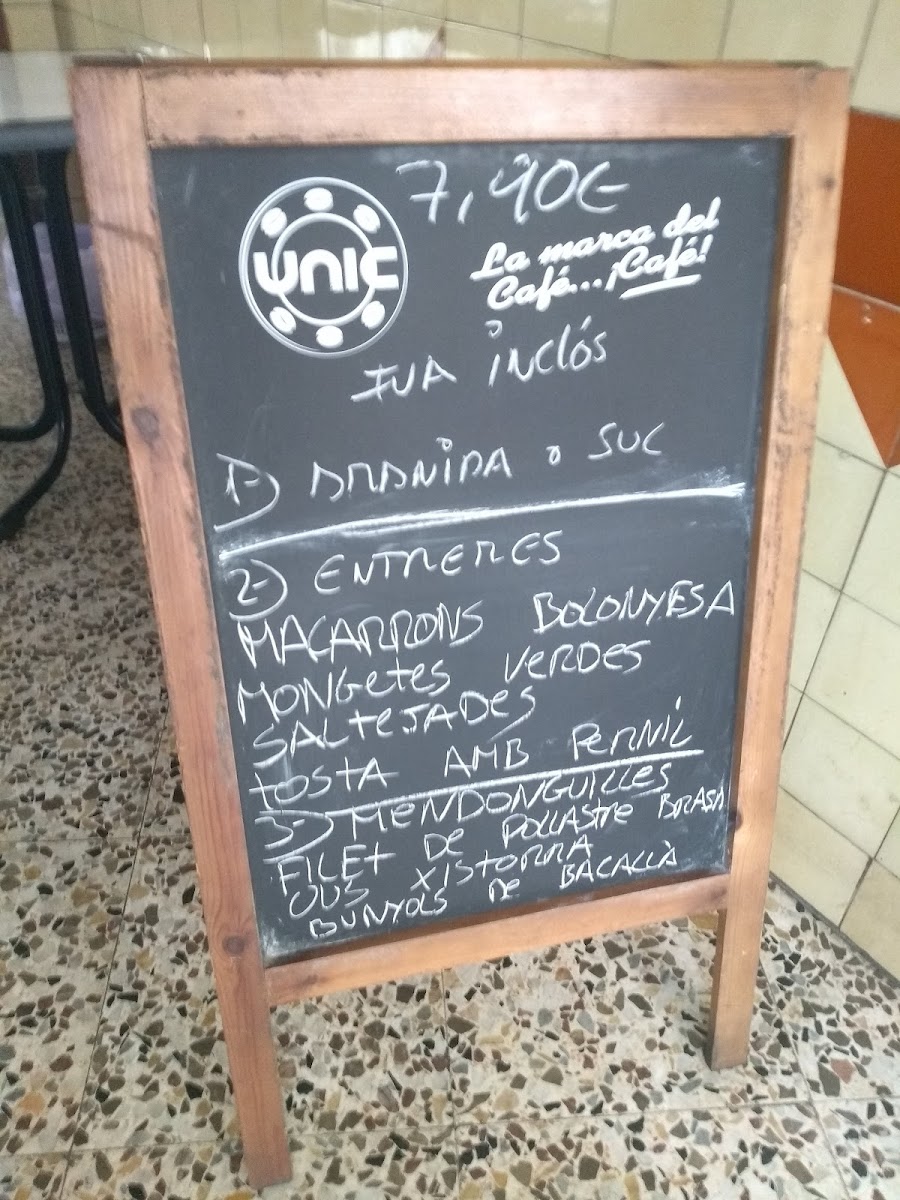 7,90€
UNIC
La marca del
Café...¡Café!
IVA inclós
1º) AMANIDA o SUC
2º) ENTREMES
MACARRONS BOLONYESA
MONGETES VERDES
SALTEJADES
TOSTA AMB PERNIL
3º) MENDONGUILLES
FILET DE POLLASTRE BRASA
OUS XISTORRA
BUNYOLS DE BACALLÀ